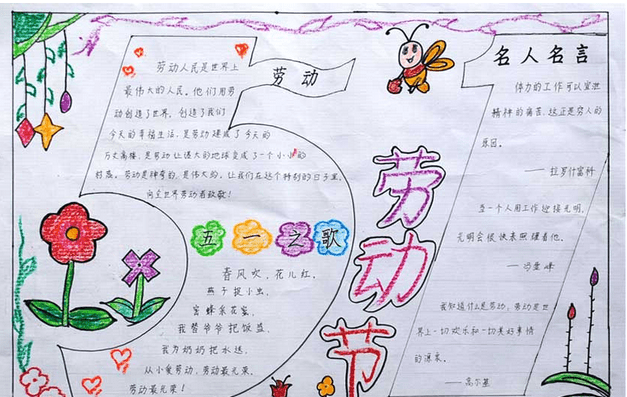 劳动
劳动人民是世界上
最伟大的人民。他们用劳
动创造了世界，创造了我们
今天的幸福生活，是劳动建成了今天的
万丈高楼，是劳动让偌大的地球变成了一个小小的
村落。劳动是神奇的，是伟大的。让我们在这个特别的日子里，
向全世界劳动者致敬！
五一之歌
春风吹，花儿红，
燕子捉小虫，
蜜蜂采花蜜，
我帮爷爷把饭盛
我为奶奶把水送
从小爱劳动，劳动最光荣，
劳动最光荣！
劳动节
名人名言
体力的工作可以宣泄
精神的痛苦，这正是穷人的
原因。
——拉罗什富科
当一个人用工作迎接光明，
光明会很快来照耀着他。
——冯学峰
我知道什么是劳动，劳动是世
界上一切欢乐和一切美好事情
的源泉。
——高尔基